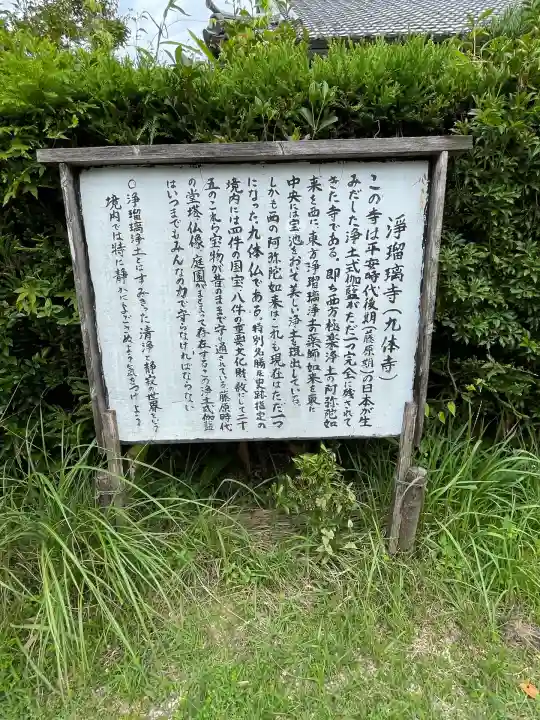 浄瑠璃寺(九体寺)
この寺は平安時代後期(藤原朝)の日本が生
みだした浄土式伽藍がただ一つ完全に残されて
きた寺である。即ち西方極楽浄土の阿弥陀如
来を西に、東方浄瑠璃浄土の薬師如来を東に
中央には宝池をおいて美しい浄土を現出している。
しかも西の阿弥陀如来は、これも現在はただ一つ
になった、九体仏である。特別名勝及史跡指定の
境内には四件の国宝、八件の重要文化財、数にして二十
五のこれら宝物が昔のままで守り通されている。藤原時代
の堂塔、仏像、庭園がまとまって存在するこの浄土式伽藍
はいつまでもみんなの力で守らなければならない
○浄瑠璃浄土とはすみきった清浄と静寂の世界という
境内では特に静かによごさぬよう気をつけましょう